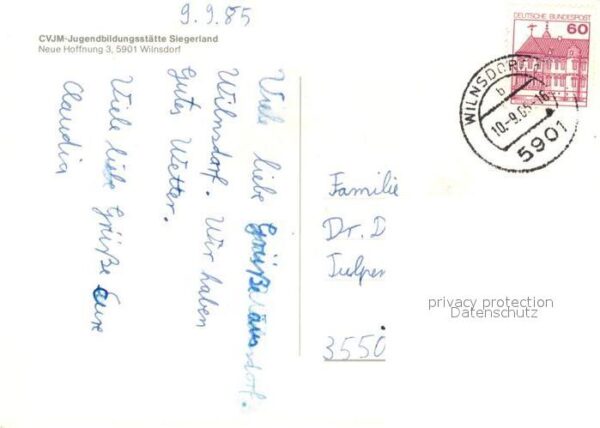 9.9.85
CVJM-Jugendbildungsstätte Siegerland
Neue Hoffnung 3, 5901 Wilnsdorf
Viele liebe Grüße aus
Wilnsdorf. Wir haben
Gutes Wetter.
Viele liebe Grüße Eure
Claudia
DEUTSCHE BUNDESPOST
60
WILNSDORF
b
10.-9.85-16
5901
Familie
Dr. D
Tulpen
3550
privacy protection
Datenschutz